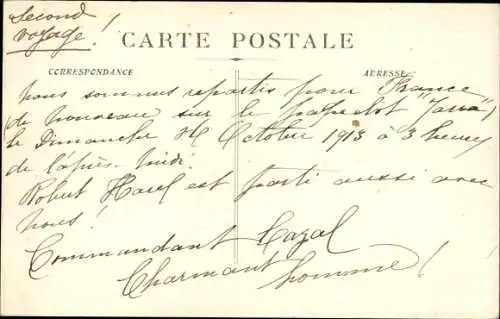 Second
voyage !
CARTE POSTALE
CORRESPONDANCE
ADRESSE
Nous sommes repartis pour France
(de nouveau sur le paquebot "Java")
le Dimanche Octobre 1913 à 3 heures
de l'après-midi.
Robert Harel est parti aussi avec
nous !
Commandant Cazal
Charmant homme !